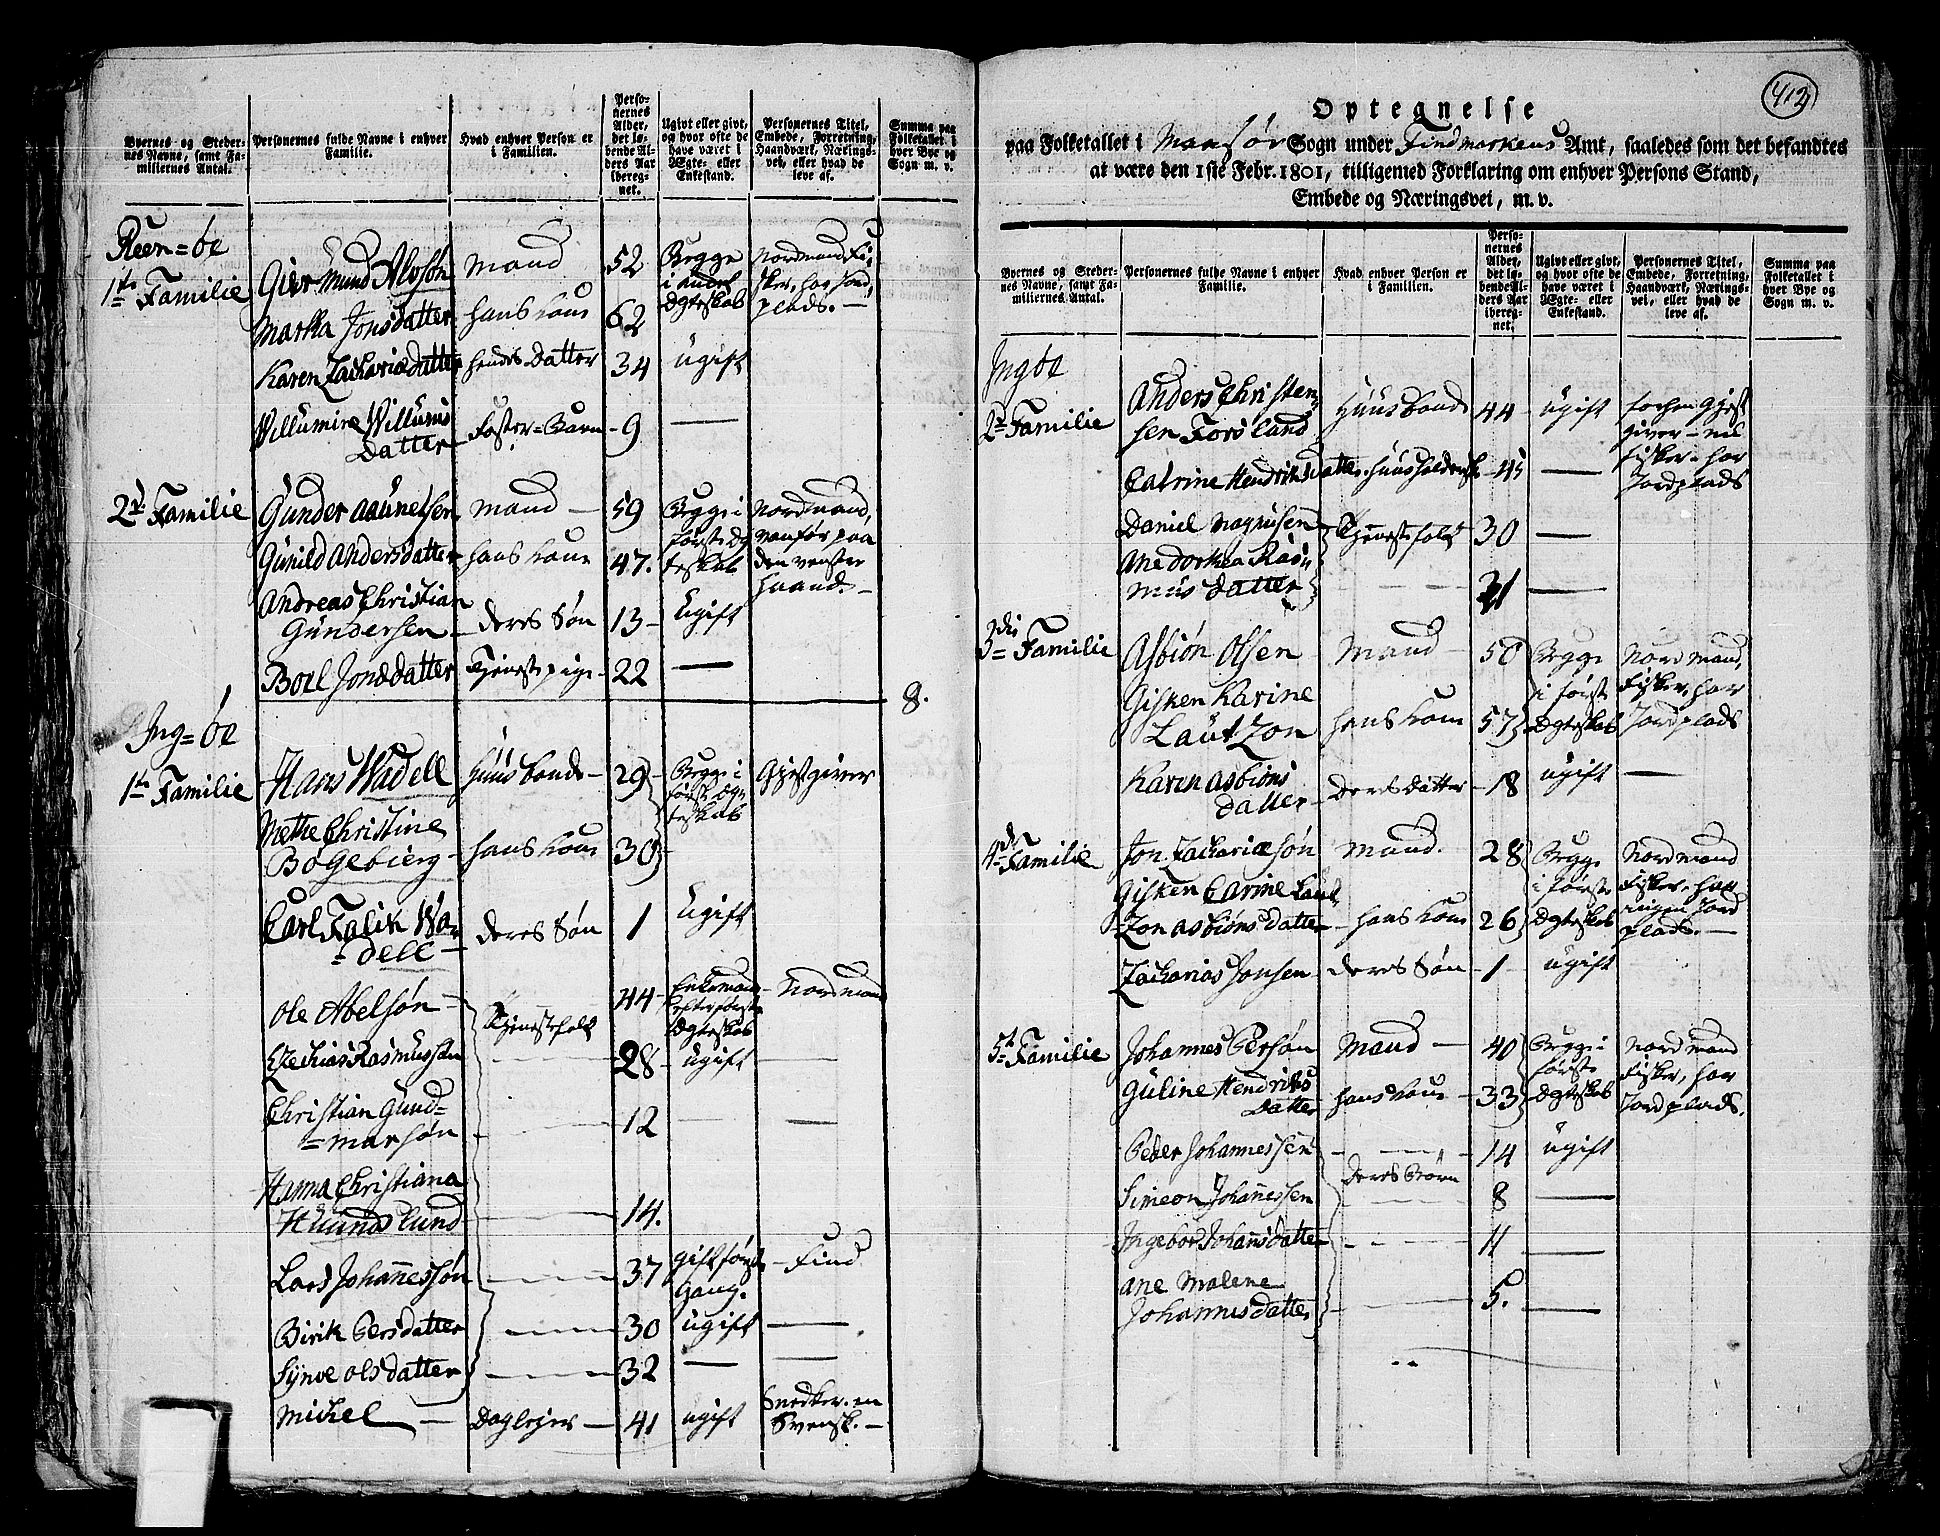 Byernes og Steder-
nes Navne, samt Fa-
miliernes Antal.
Personernes fulde Navne i enhver
Familie.
Hvad enhver Person er
i Familien.
Perso-
nernes
Alder,
det lø-
bende Al-
ders Aar
iberegn-
net.
Ugivt eller givt,
og hvor ofte de
have været i
Ægte- eller
Enkestand.
Personernes Titel,
Embede, Forretning,
Haandværk, Nærings-
vei, eller hvad de
leve af.
Summa paa
Folketallet i
hver Bye og
Sogn m. v.
Reen=öe
1te Familie
Martha Jonsdatter hans Kone 62
Karen Zachariædatter hendes Datter 34 ugift
Willumine Willums
Datter Foster=Barn 9 —
mand 52 Begge
i andet
Ægteskab
Nordmand Fi-
sker, har Jord
plads. —
2den Familie
Gunder mand — 59 Begge i
første Æg
teskab
Nordmand,
vanför paa
den venster
haand. —
Gunild Andersdatter hans Kone 47.
Andreas Christian
Gundersen deres Søn 13 — Ugift
Boel Jonsdatter Tjenestepige 22 —
8.
Ing=öe
1te Familie
Hans Wadell Huusbonde 29 Begge i
første Æg
teskab
Gjestgiver
Methe Christine
Bogebierg hans Kone 30
Carl Falik Wa-
=dell deres Søn 1 Ugift
Ole Abelsøn Tjenestefolk 44 Enkemand
efter første
Ægteskab
Nordmand
Rasmussen 28 ugift —
Christian Gund=
=marsøn 12 — —
Hanna Christiana
14.
Lars Johannessøn 37 gift første
Gang.
Find
Birik Persdatter 30 ugift —
Synve Olsdatter 32 — —
Michel — Daglejer — 41 ugift Snedker. en
Svensk. —
412
Optegnelse
paa Folketallet i Maasøe Sogn under Findmarkens Amt, saaledes som det befandtes
at være den 1ste Febr. 1801, tilligemed Forklaring om enhver Persons Stand,
Embede og Næringsvei, m. v.
Byernes og Steder-
nes Navne, samt Fa-
miliernes Antal.
Personernes fulde Navne i enhver
Familie.
Hvad enhver Person er
i Familien.
Perso-
nernes
Alder,
det lø-
bende Al-
ders Aar
iberegn-
net.
Ugivt eller givt,
og hvor ofte de
have været i
Ægte- eller
Enkestand.
Personernes Titel,
Embede, Forretning,
Haandværk, Nærings-
vei, eller hvad de
leve af.
Summa paa
Folketallet i
hver Bye og
Sogn m. v.
Ingöe
2den Familie
Anders Christen-
sen Forslund Huusbonde 44 ugift
forhen Gjest
giver — nu
fisker — har
Jordplads
Catrine Hendriksdatter 45 —
Daniel Magnusen Tjenestefolk 30 —
Ane Dorthea Ras-
mus datter 21 —
3die Familie
Asbiön Olsen Mand 50 Begge
i første
Ægteskab
Nordmand,
Fisker, har
Jordplads
Gisken Karine
Lautzon hans Kone 57
Karen Asbiöns
datter Deres datter 18 ugift —
4de Familie
Jon Zachariæsøn Mand. 28 Begge
i første
Ægteskab
Nordmand
Fisker, har
ingen Jord
plads. —
Gisken Carine Laut
Zon Asbiöns datter hans Kone 26
Zacharias Jonsen deres Søn 1 ugift
5te Familie
Johannes Persøn Mand — 40 Begge i
første
Ægteskab
Nordmand
Fisker, har
Jordplads.
Guline Hendriks
Datter hans Kone 33
Peder Johannessen Deres Börn 14 ugift
Simeon Johannessen 8 —
Ingebor Johansdatter 11 —
Ane Malene
Johannisdatter 5. —